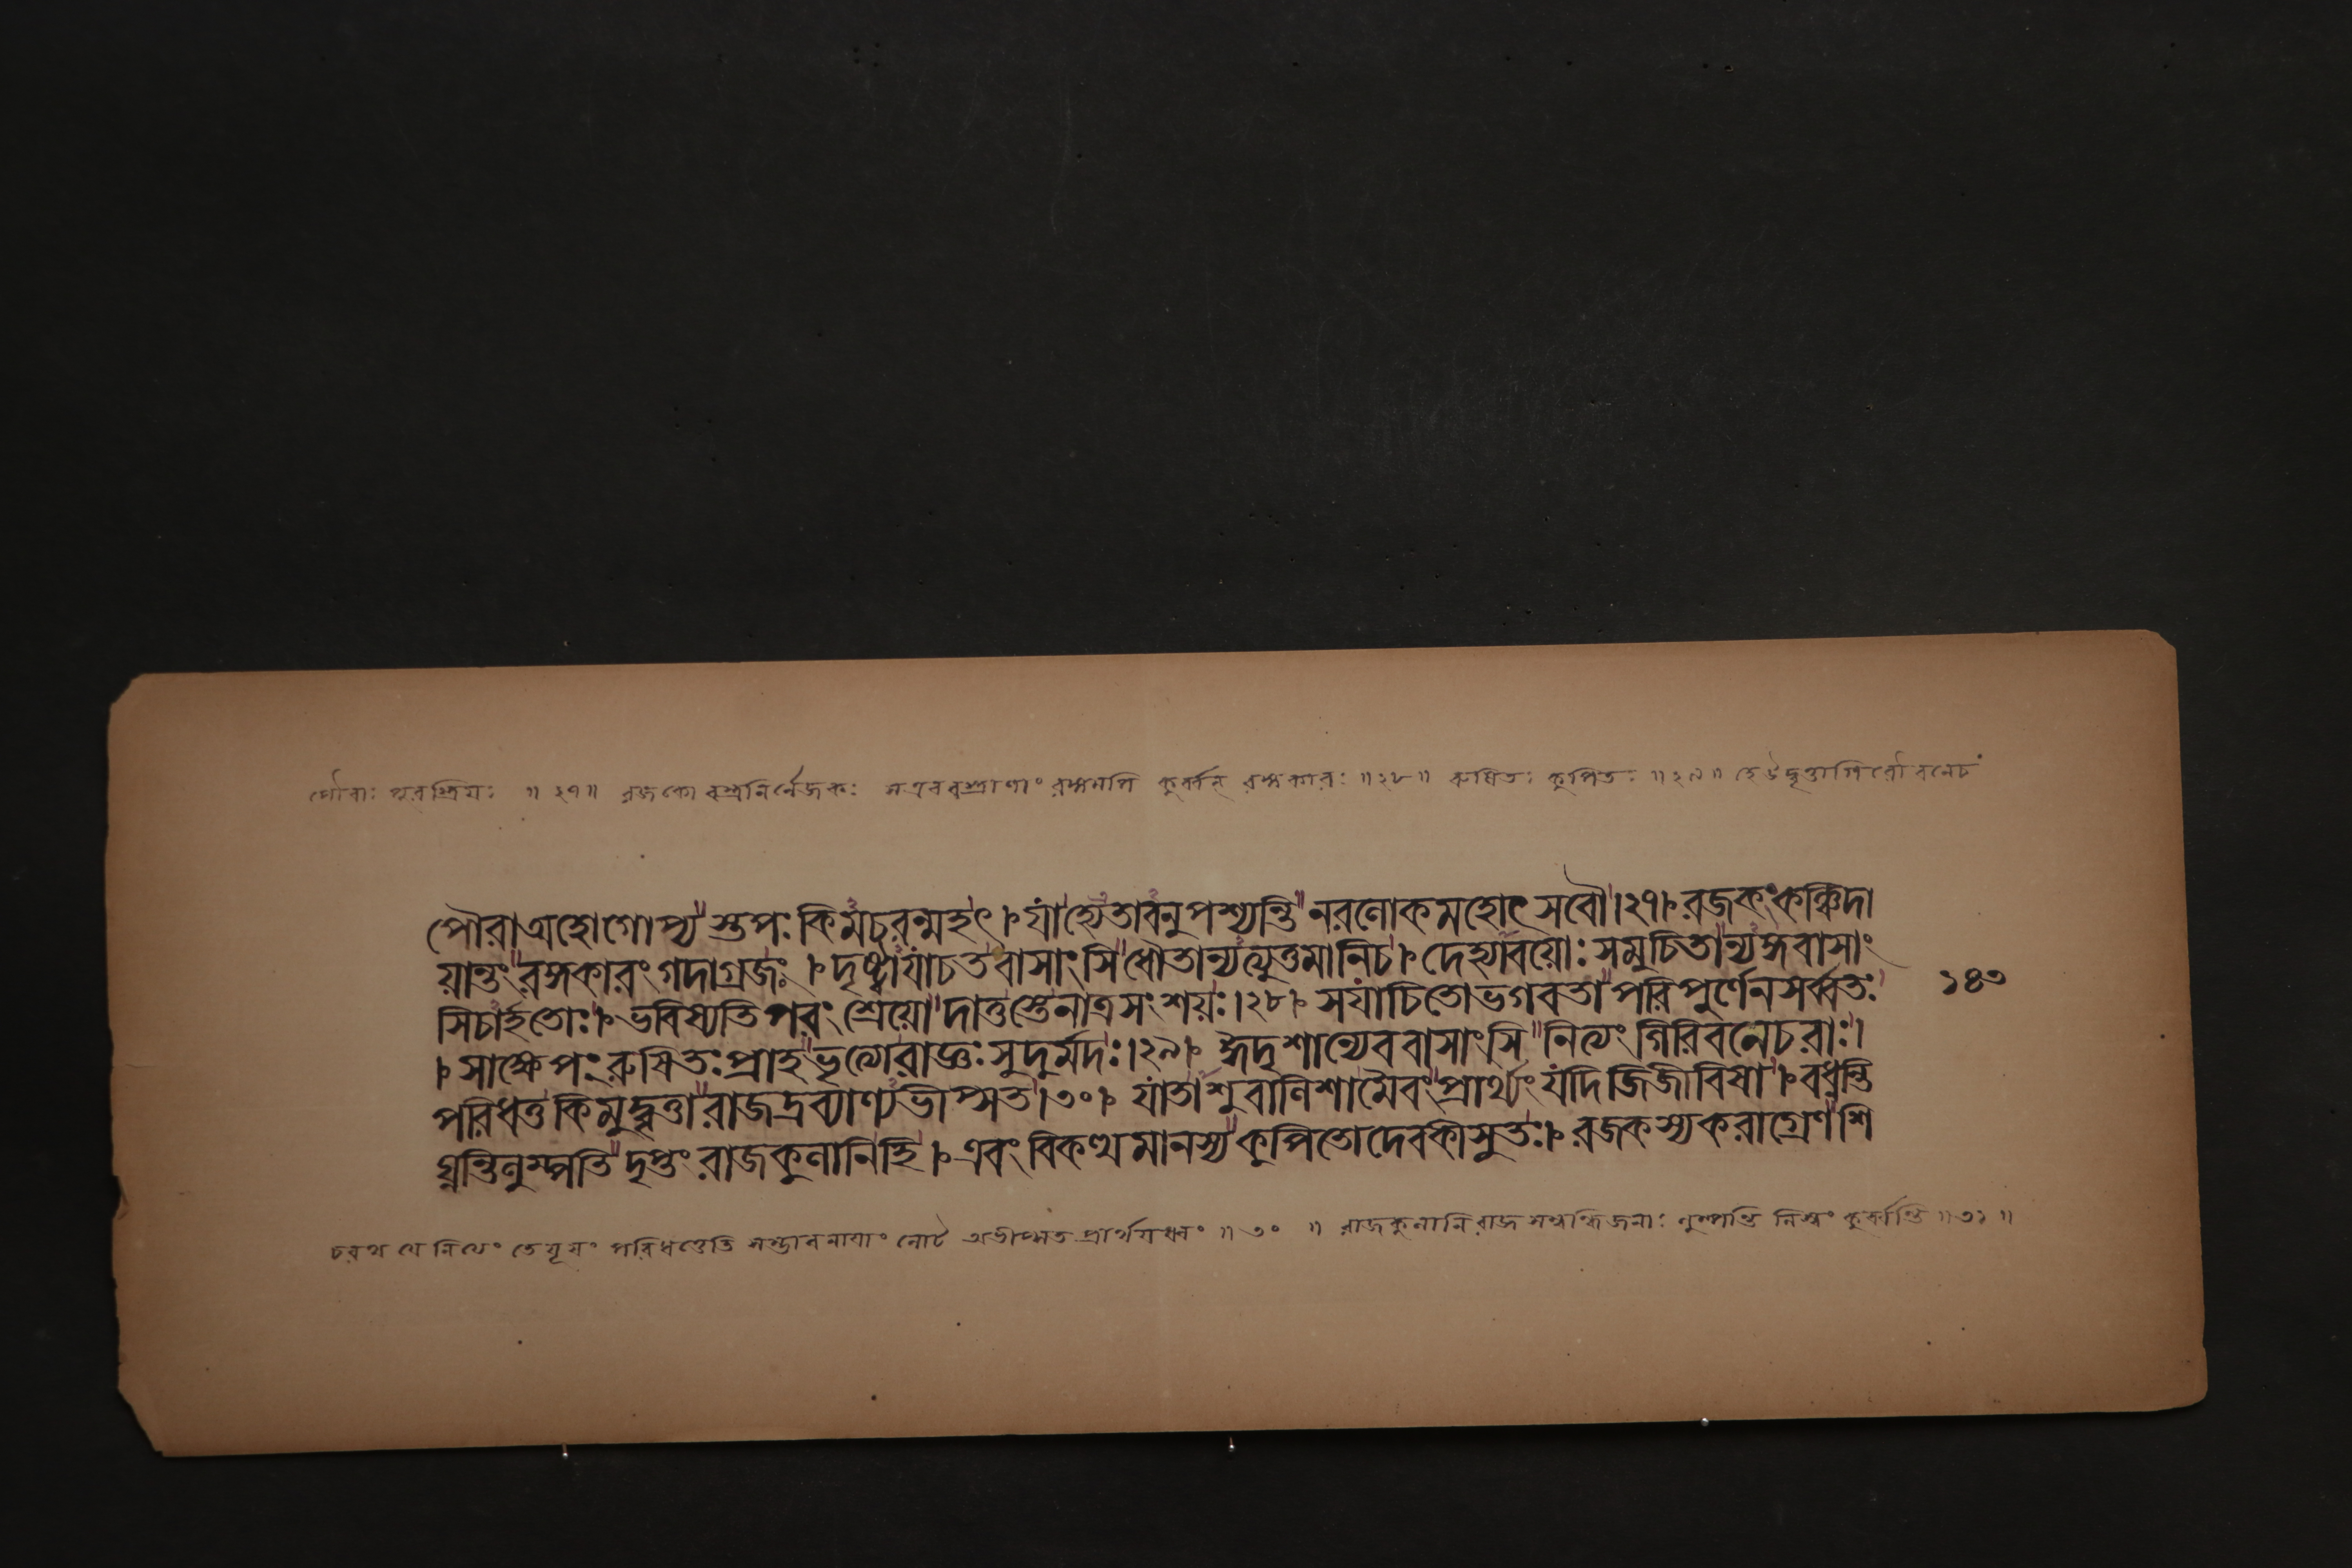 পৌরাঃ পুরস্ত্রিয়ঃ ॥ ২৭ ॥ রজকো বস্ত্রনির্নেজকঃ সএববস্ত্রাণাং রঙ্গমপি কুর্ব্বন্ রঙ্গকারঃ ॥ ২৮ ॥ রুষিতঃ কুপিতঃ ॥ ২৯ ॥ হেউদ্বৃত্তাগিরৌবনেচ
পৌরাঅহোগোপ্যস্তপঃ কিমচরন্মহৎ । যাহ্যেতাবনুপশ্যন্তি নরলোকমহোৎসবৌ । ২৭ । রজকংকঞ্চিদা
য়ান্তংরঙ্গকারংগদাগ্রজঃ । দৃষ্ট্বাযাচতবাসাংসিধৌতান্যত্যুত্তমানিচ । দেহ্যাবয়োঃ সমুচিতান্যঙ্গবাসাং
সিচার্হতোঃ । ভবিষ্যতিপরংশ্রেয়োদাতুস্তেনাত্রসংশয়ঃ । ২৮ । সযাচিতোভগবতাপরিপূর্ণেনসর্ব্বতঃ
১৪৩
। সাক্ষেপংরুষিতঃপ্রাহভৃত্যোরাজ্ঞঃসুদুর্ম্মদঃ । ২৯ । ঈদৃশান্যেববাসাংসি নিত্যংগিরিবনেচরাঃ ।
পরিধত্তকিমুদ্বৃত্তারাজদ্রব্যাণ্যভীপ্সত । ৩০ । যাতাশুবালিশামৈবংপ্রার্থ্যংযদিজিজীবিষা । বধ্নন্তি
ঘ্নন্তিলুম্পন্তিদৃপ্তংরাজকুলানিহি । এবংবিকত্থমানস্যকুপিতোদেবকীসুতঃ । রজকস্যকরাগ্রেণশি
চরথ যে নিত্যং তে যূয়ং পরিধত্তেতি সম্ভাবনায়াং লোট্ অভীপ্সত প্রার্থয়ধ্বং ॥ ৩০ ॥ রাজকুলানিরাজসম্বন্ধিজনাঃ লুম্পন্তি নিস্বং কুর্ব্বন্তি ॥ ৩১ ॥